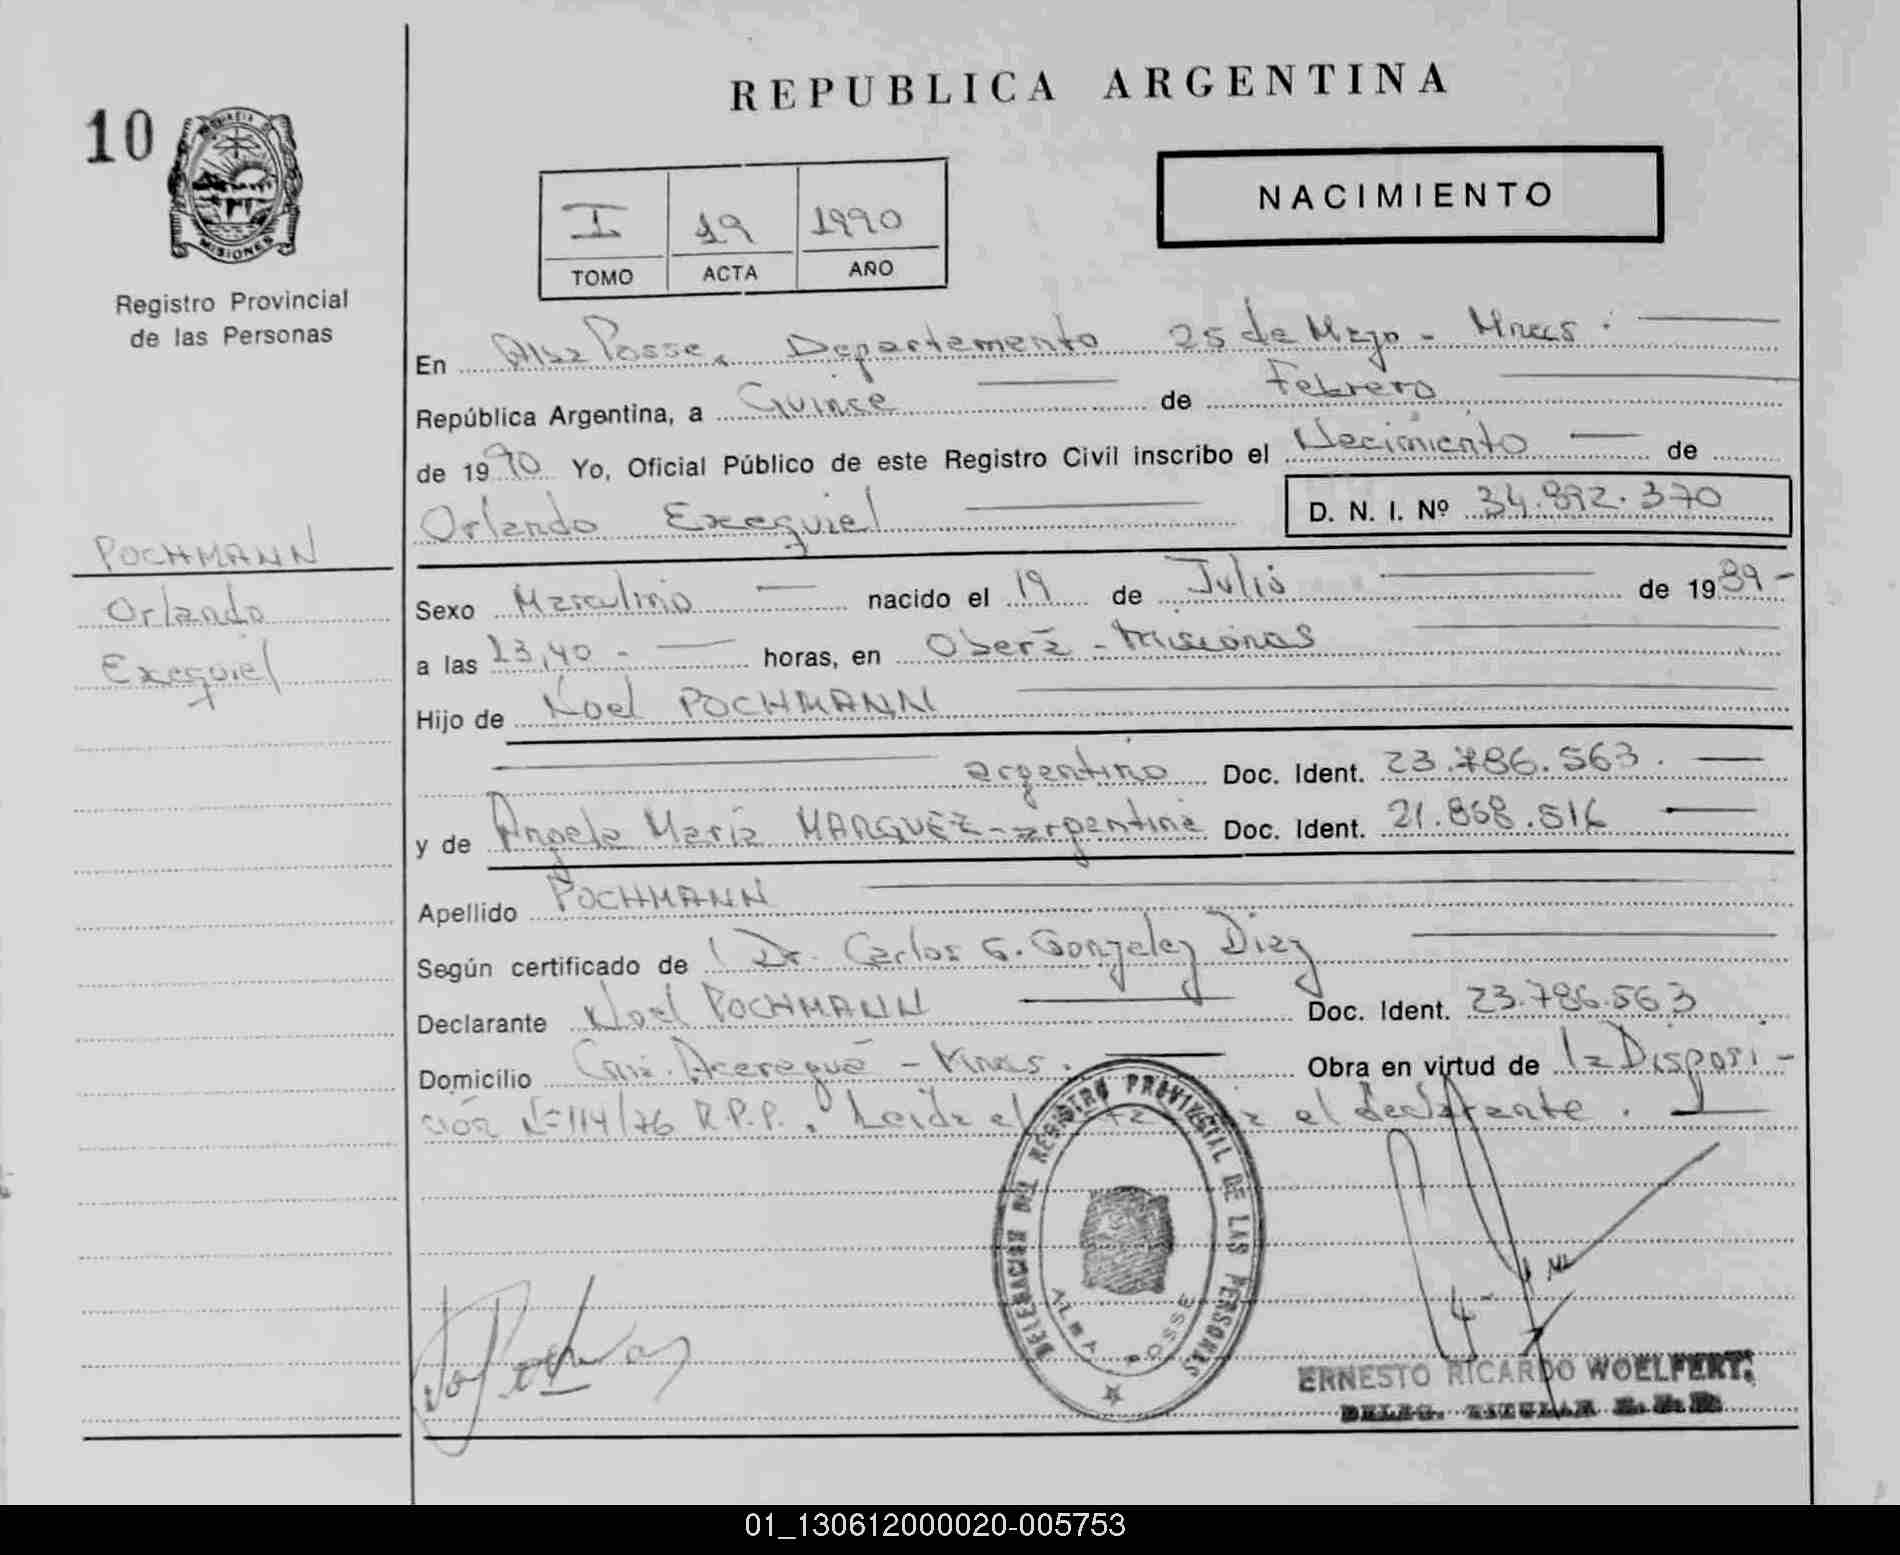 REPUBLICA ARGENTINA
10
MISIONES
Registro Provincial
de las Personas
I 19 1990
TOMO ACTA AÑO
NACIMIENTO
En Alba Posse, Departamento 25 de Mayo - Mnes.
República Argentina, a Quince de Febrero
de 1990 Yo, Oficial Público de este Registro Civil inscribo el Nacimiento de
Orlando Exequiel D. N. I. Nº 34.892.370
POCHMANN
Orlando
Exequiel
Sexo Masculino nacido el 19 de Julio de 1989 -
a las 13,40 - horas, en Oberá - Misiones
Hijo de Noel POCHMANN
argentino Doc. Ident. 23.786.563.
y de Angela María MARQUEZ - argentina Doc. Ident. 21.868.516
Apellido POCHMANN
Según certificado de Dr. Carlos G. Gonzalez Diaz
Declarante Noel POCHMANN Doc. Ident. 23.786.563
Domicilio Cnia. Acaraguá - Mnes. Obra en virtud de la Disposi-
ción Nº 114/76 R.P.P. Leida el el declarante.
DELEGACION DEL REGISTRO PROVINCIAL DE LAS PERSONAS
ALBA POSSE
ERNESTO RICARDO WOELFERT
DELEG. TITULAR
01_130612000020-005753